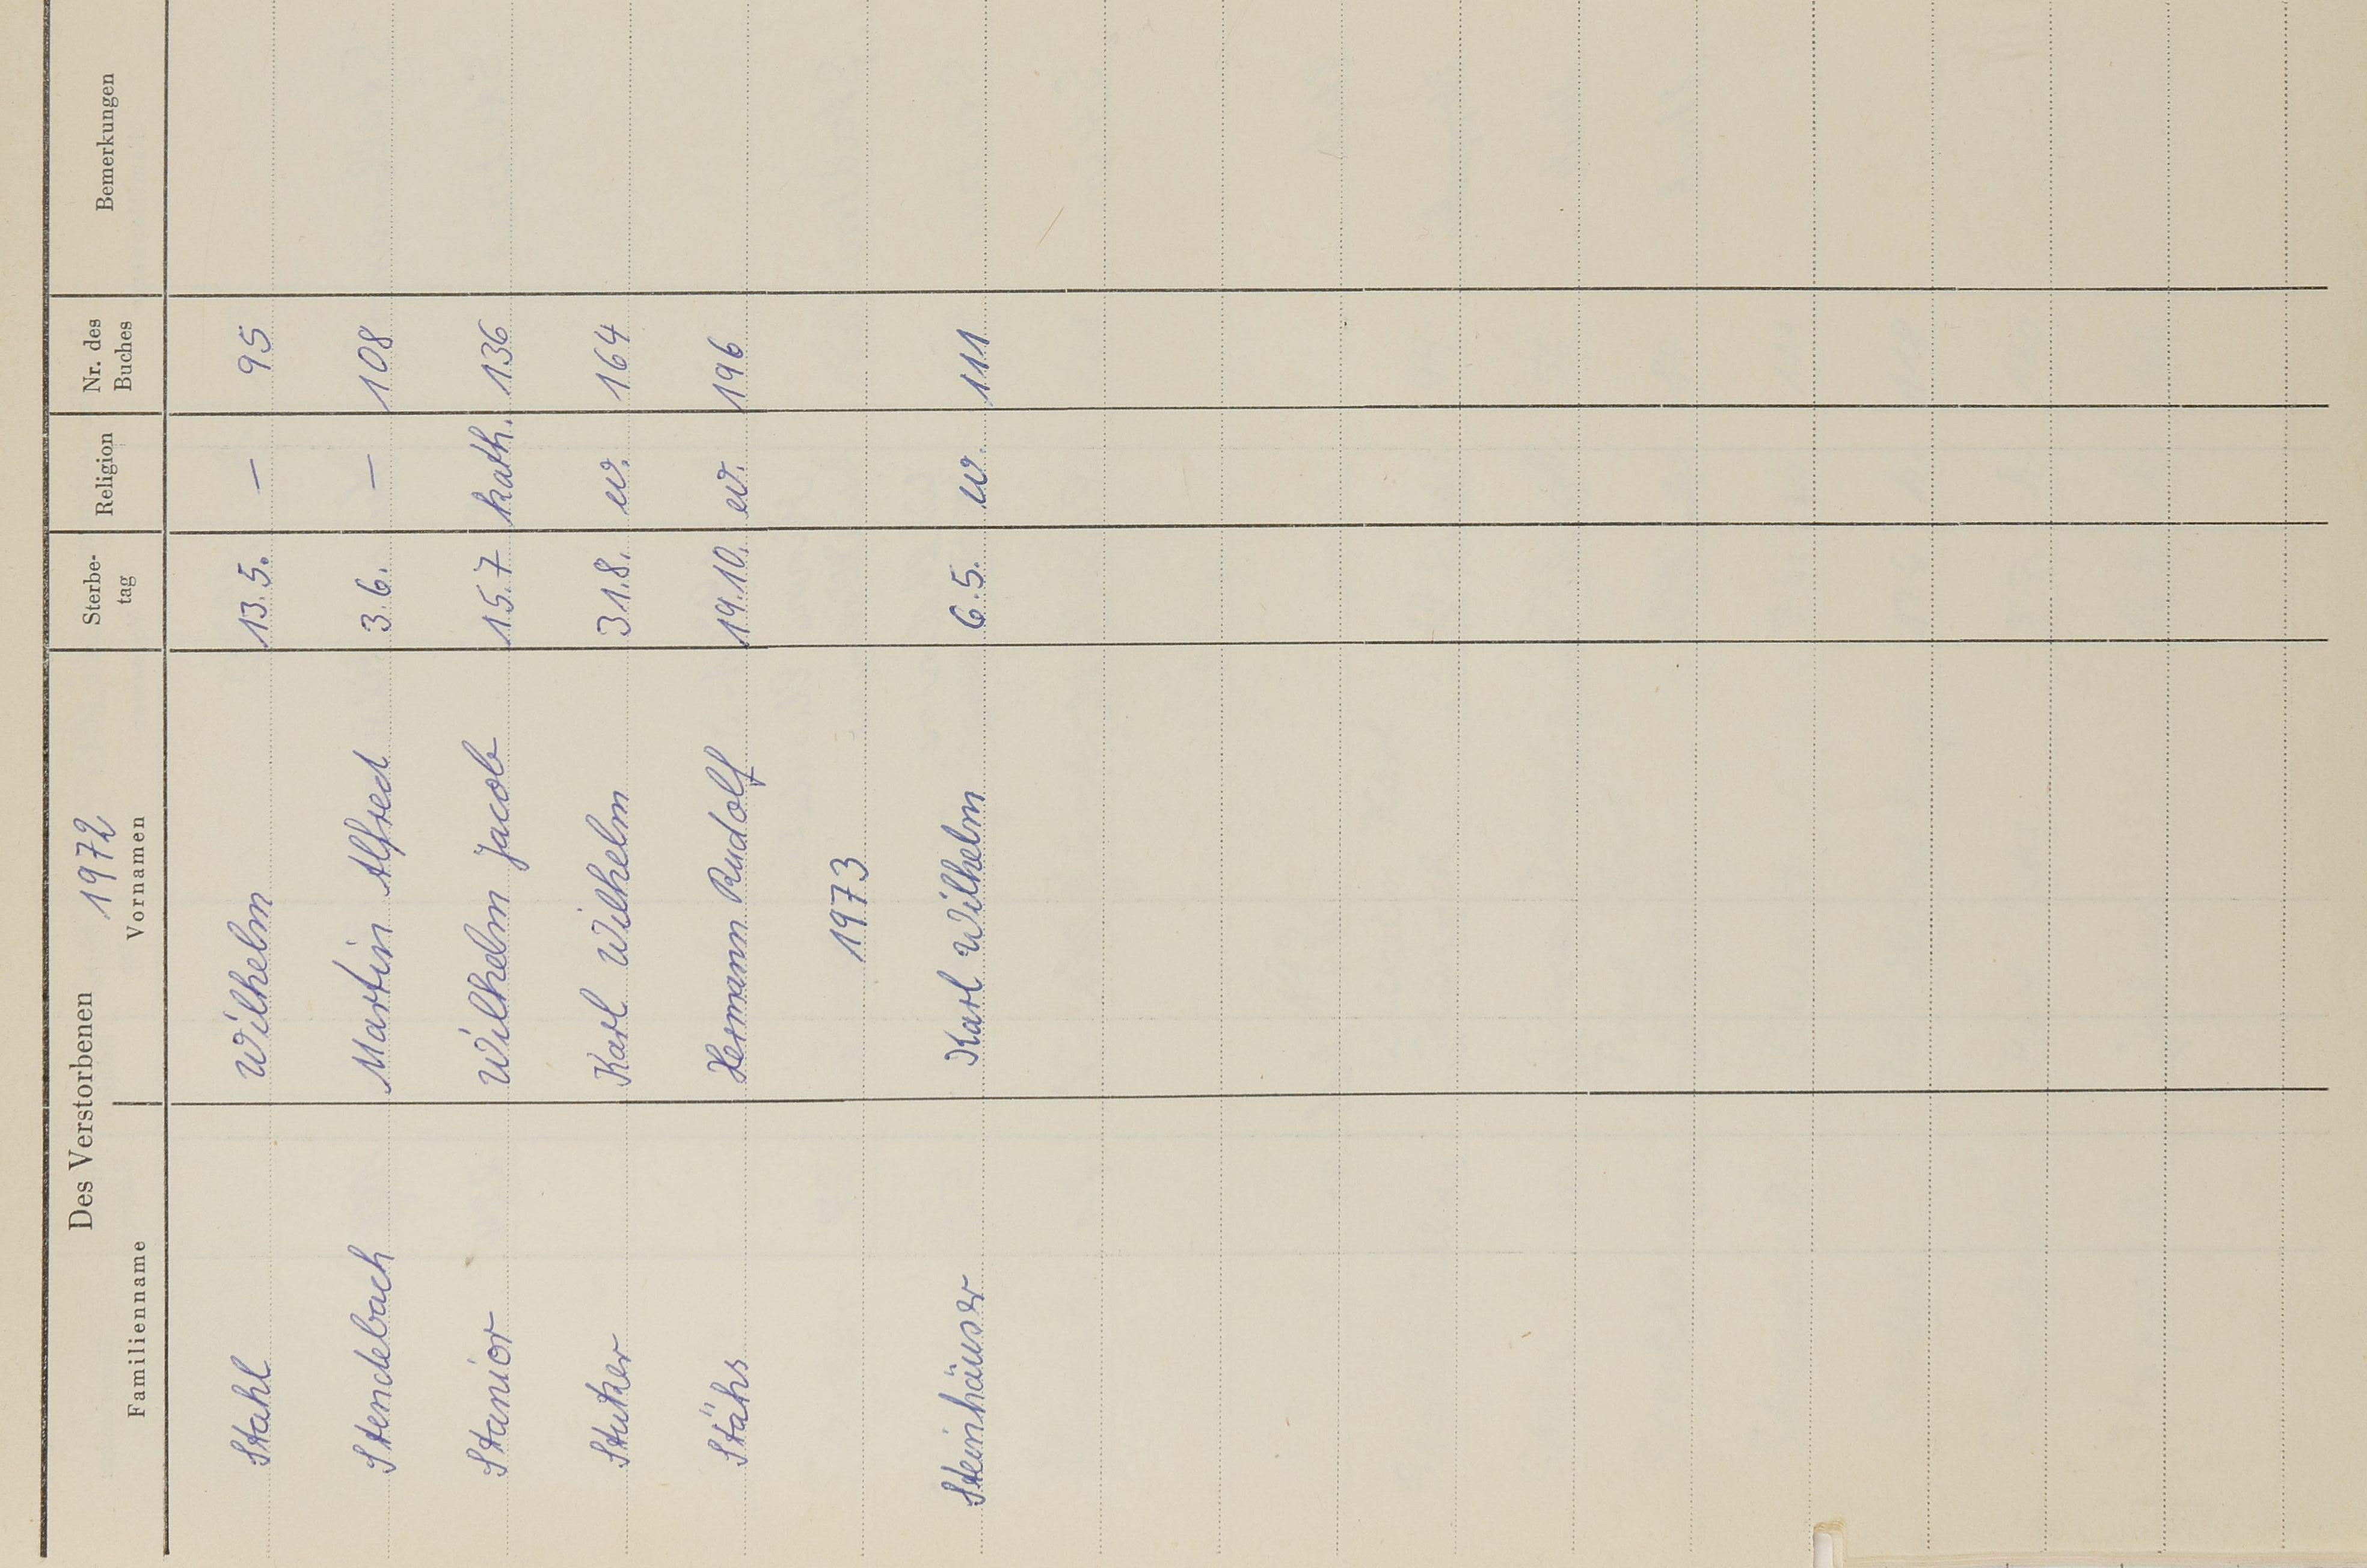 Des Verstorbenen 1972
Familienname Vornamen Sterbe-tag Religion Nr. des Buches Bemerkungen
Stahl Wilhelm 13.5. – 95
Stendebach Martin Alfred 3.6. – 108
Stanior Wilhelm Jacob 15.7 kath. 136
Stuker Karl Wilhelm 31.8. ev. 164
Stähs Hermann Rudolf 19.10. ev. 196
1973
Steinhäuser Karl Wilhelm 6.5. ev. 111